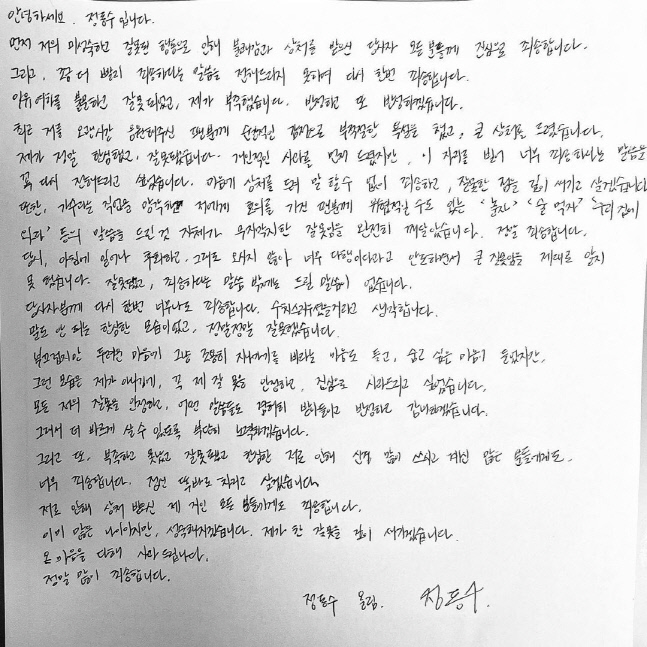 안녕하세요. 정동수입니다.
먼저 저의 미성숙하고 잘못된 행동으로 인해 불쾌감과 상처를 받으신 당사자 모든분들께 진심으로 죄송합니다.
그리고, 좀 더 빨리 죄송하다는 말씀을 전해드리지 못하여 다시 한번 죄송합니다.
이유여하를 불문하고 잘못되었고, 제가 부족했습니다. 반성하고 또 반성하겠습니다.
특히 저를 오랜시간 응원해주신 팬분께 순간적인 감정으로 부적절한 언행을 했고, 큰 상처를 드렸습니다.
제가 정말 한심했고, 잘못했습니다. 개인적인 사과를 먼저 드렸지만, 이 자리를 빌어 너무 죄송하다는 말씀을
꼭 다시 전해드리고 싶었습니다. 마음에 상처를 드려 말 할 수 없이 죄송하고, 잘못한 점을 깊이 새기고 살겠습니다
또한, 가수라는 직업을 망각한채 저에게 호의를 가진 팬분께 위협적일수도 있는 '놀자' '술 먹자' '우리집에
와라' 등의 말씀을 드린 것 자체가 무지각했던 잘못임을 완전히 깨달았습니다. 정말 죄송합니다.
당시, 아침에 일어나 후회하고, 그대로 와주지 않아 너무 다행이다라고 안도하면서 큰 잘못임을 제대로 알지
못 했습니다. 잘못했고, 죄송하다는 말씀 밖에는 드릴 말씀이 없습니다.
당사자분께 다시 한번 너무나도 죄송합니다. 수치스러우셨을거라고 생각합니다.
말도 안 되는 한심한 모습이었고, 정말정말 잘못했습니다.
부끄럽지만 두려운 마음에 그냥 조용히 지나가기를 바라는 마음도 들고, 숨고 싶은 마음이 들었지만,
그런 모습을 제가 이겨내, 꼭 제 잘못을 인정하고, 진심으로 사과드리고 싶었습니다.
모든 저의 잘못을 인정하고, 어떤 말씀들도 겸허히 받아들이고 반성하고 감내하겠습니다.
그래서 더 바르게 살 수 있도록 부단히 노력하겠습니다.
그리고 또, 부족하고 못났고 잘못했고 한심한 저로 인해 신경 많이 쓰시고 계신 많은 분들에게도.
너무 죄송합니다. 점검 또 바로 하고 살겠습니다
저로 인해 상처 받으신 제 지인 모든 분들에게도 죄송합니다.
이미 많은 나이이지만, 성숙해지겠습니다. 제가 한 잘못을 깊이 새기겠습니다.
온 마음을 다해 사과 드립니다.
정말 많이 죄송합니다.
정동수 올림. 정동수.